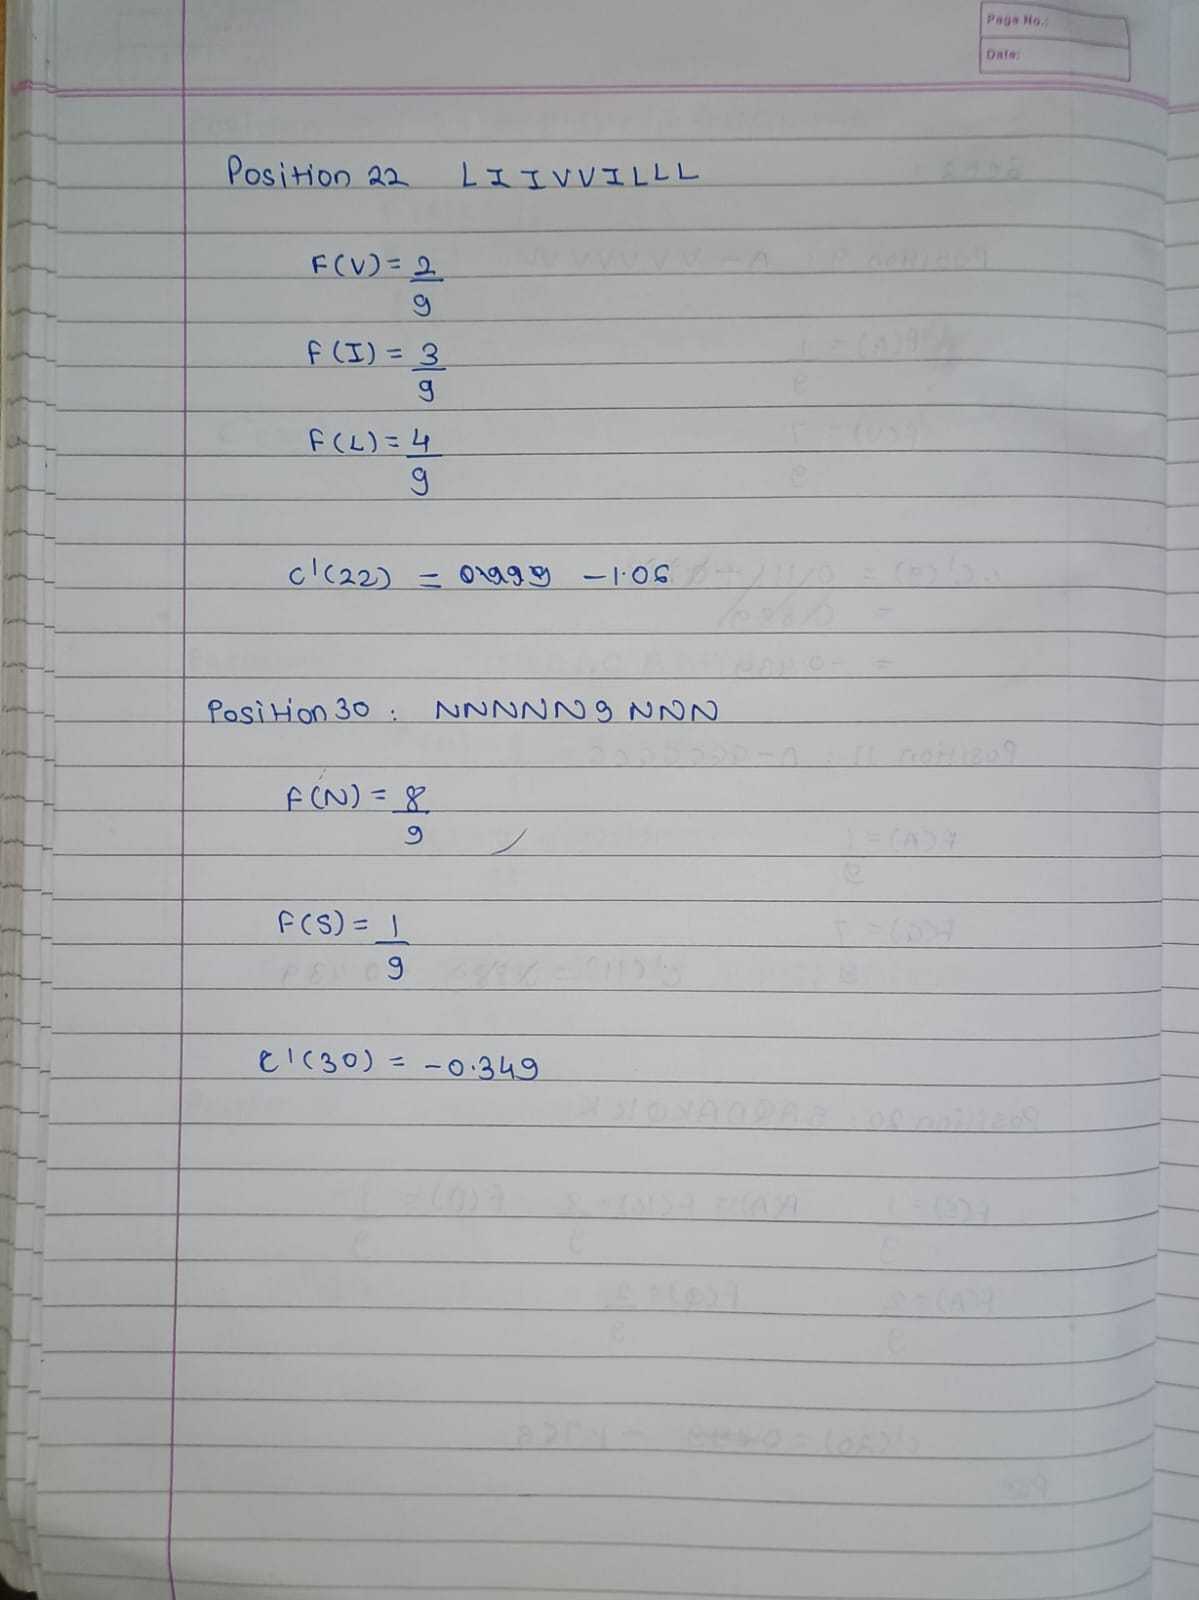 Page No.:
Date:
Position 22 LIIVVILLL
F(V) = 2
9
F(I) = 3
9
F(L) = 4
9
C'(22) = -1.06
Position 30 : NNNNNS NNN
F(N) = 8
9
F(S) = 1
9
C'(30) = -0.349